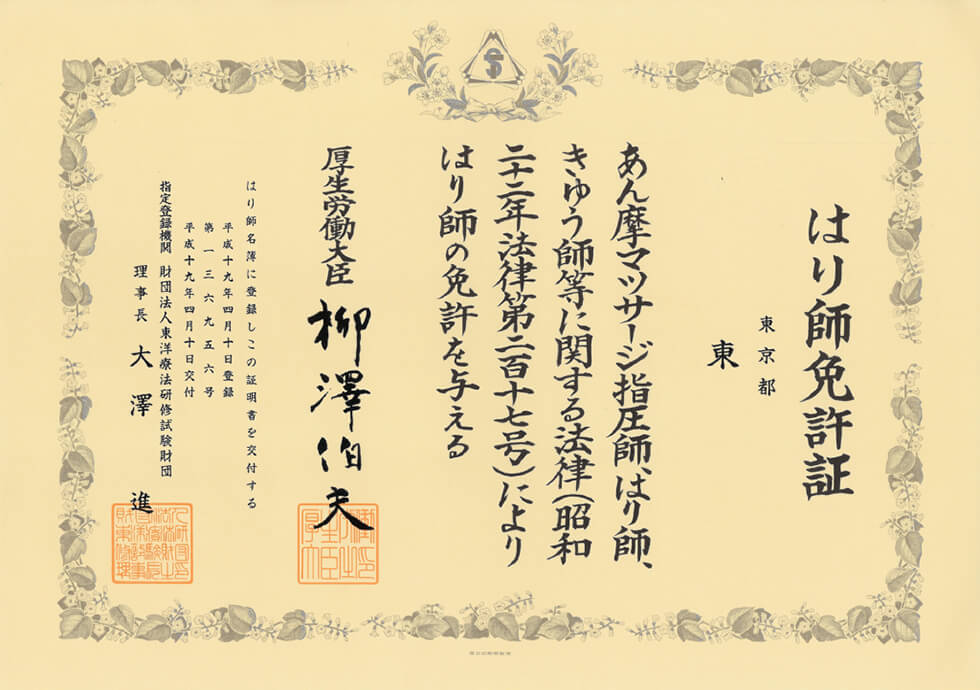 はり師免許証
東京都
東
あん摩マッサージ指圧師、はり師、
きゆう師等に関する法律（昭和
二十二年法律第二百十七号）により
はり師の免許を与える
厚生労働大臣 柳澤伯夫
はり師名簿に登録しこの証明書を交付する
平成十九年四月十日登録
第一三六九五六号
平成十九年四月十日交付
指定登録機関 財団法人東洋療法研修試験財団
理事長 大澤進